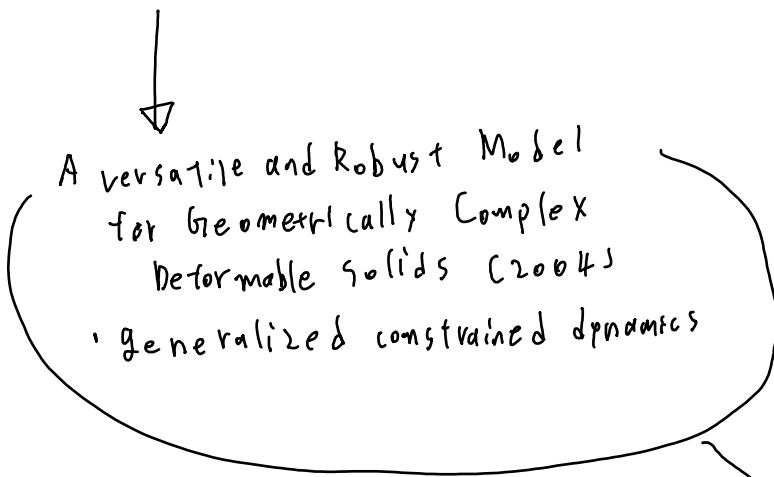 A versatile and Robust Model
for Geometrically Complex
Deformable Solids (2004)
· generalized constrained dynamics